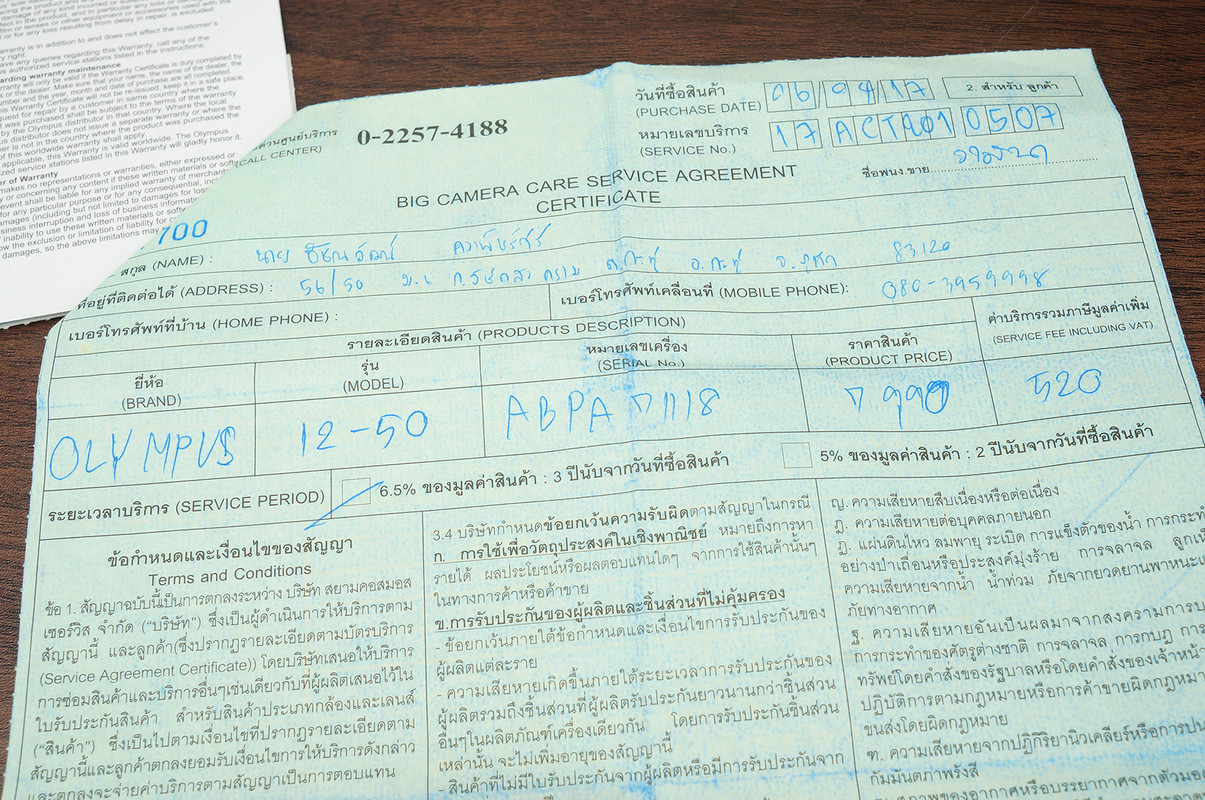 ing the product and
damage of any kind incurred
ffect in the product, and in particular
film or lenses or other equipment or accessories used with the
t or for any loss resulting from delay in repair, is excluded.
arranty is in addition to and does not affect the customer's
ry right.
have any queries regarding this Warranty, call any of the
s authorized service stations listed in the instructions.
arding warranty maintenance
arranty will only be valid if the Warranty Certificate is duly completed by
s or the dealer. Make sure that your name, the name of the dealer, the
umber and the year, month and date of purchase are all completed.
his Warranty Certificate will not be re-issued, keep it in a safe place.
quest for repair by a customer in same country where the
t was purchased shall be subject to the terms of the warranty
by the Olympus distributor in that country. Where the local
us distributor does not issue a separate warranty or where the
er is not in the country where the product was purchased the
of this worldwide warranty shall apply.
applicable, this Warranty is valid worldwide. The Olympus
zed service stations listed in this Warranty will gladly honor it.
er of Warranty
makes no representations or warranties, either expressed or
y or concerning any content if these written materials or
event shall be liable for any implied warranty of
for any particular purpose or for any consequential,
damages (including but not limited to damages for
siness interruption and loss of business
inability to use these written materials or
ow the exclusion or limitation of liability for
damages, so the above limitations may
วันที่ซื้อสินค้า 06/04/17 2. สำหรับ ลูกค้า
(PURCHASE DATE)
ศูนย์บริการ 0-2257-4188
(CALL CENTER)
หมายเลขบริการ 17 ACTA01 0507
(SERVICE No.)
ชื่อพนง.ขาย
BIG CAMERA CARE SERVICE AGREEMENT
CERTIFICATE
700
สกุล (NAME) : นาย
ที่อยู่ที่ติดต่อได้ (ADDRESS) : 56/50 ต.กะทู้ อ.กะทู้ จ.ภูเก็ต 83120
เบอร์โทรศัพท์ที่บ้าน (HOME PHONE) : เบอร์โทรศัพท์เคลื่อนที่ (MOBILE PHONE): 080-3959998
รายละเอียดสินค้า (PRODUCTS DESCRIPTION) ค่าบริการรวมภาษีมูลค่าเพิ่ม
(SERVICE FEE INCLUDING VAT)
ยี่ห้อ รุ่น หมายเลขเครื่อง ราคาสินค้า
(BRAND) (MODEL) (SERIAL No.) (PRODUCT PRICE)
OLYMPUS 12-50 ABPA 71118 7990 520
ระยะเวลาบริการ (SERVICE PERIOD) 6.5% ของมูลค่าสินค้า : 3 ปีนับจากวันที่ซื้อสินค้า 5% ของมูลค่าสินค้า : 2 ปีนับจากวันที่ซื้อสินค้า
ข้อกำหนดและเงื่อนไขของสัญญา
Terms and Conditions
ข้อ 1. สัญญาฉบับนี้เป็นการตกลงระหว่าง บริษัท สยามคอสมอส
เซอร์วิส จำกัด ("บริษัท") ซึ่งเป็นผู้ดำเนินการให้บริการตาม
สัญญานี้ และลูกค้า(ซึ่งปรากฏรายละเอียดตามบัตรบริการ
(Service Agreement Certificate)) โดยบริษัทเสนอให้บริการ
การซ่อมสินค้าและบริการอื่นๆเช่นเดียวกับที่ผู้ผลิตเสนอไว้ใน
ใบรับประกันสินค้า สำหรับสินค้าประเภทกล้องและเลนส์
("สินค้า") ซึ่งเป็นไปตามเงื่อนไขที่ปรากฏรายละเอียดตาม
สัญญานี้และลูกค้าตกลงยอมรับเงื่อนไขการให้บริการดังกล่าว
และตกลงจะจ่ายค่าบริการตามสัญญาเป็นการตอบแทน
3.4 บริษัทกำหนดข้อยกเว้นความรับผิดตามสัญญาในกรณี
ก. การใช้เพื่อวัตถุประสงค์ในเชิงพาณิชย์ หมายถึงการหา
รายได้ ผลประโยชน์หรือผลตอบแทนใดๆ จากการใช้สินค้านั้นๆ
ในทางการค้าหรือค้าขาย
ข.การรับประกันของผู้ผลิตและชิ้นส่วนที่ไม่คุ้มครอง
- ข้อยกเว้นภายใต้ข้อกำหนดและเงื่อนไขการรับประกันของ
ผู้ผลิตแต่ละราย
- ความเสียหายเกิดขึ้นภายใต้ระยะเวลาการรับประกันของ
ผู้ผลิตรวมถึงชิ้นส่วนที่ผู้ผลิตรับประกันยาวนานกว่าชิ้นส่วน
อื่นๆในผลิตภัณฑ์เครื่องเดียวกัน โดยการรับประกันชิ้นส่วน
เหล่านั้น จะไม่เพิ่มอายุของสัญญานี้
- สินค้าที่ไม่มีใบรับประกันจากผู้ผลิตหรือมีการรับประกันจาก
ญ. ความเสียหายสืบเนื่องหรือต่อเนื่อง
ฎ. ความเสียหายต่อบุคคลภายนอก
ฏ. แผ่นดินไหว ลมพายุ ระเบิด การแข็งตัวของน้ำ การกระทำ
อย่างป่าเถื่อนหรือประสงค์มุ่งร้าย การจลาจล ลูกเห็
ความเสียหายจากน้ำ น้ำท่วม ภัยจากยวดยานพาหนะ
ภัยทางอากาศ
ฐ. ความเสียหายอันเป็นผลมาจากสงครามการบ
การกระทำของศัตรูต่างชาติ การจลาจล การกบฏ การ
ทรัพย์โดยคำสั่งของรัฐบาลหรือโดยคำสั่งของเจ้าหน้า
ปฏิบัติการตามกฎหมายหรือการค้าขายผิดกฎหมาย
ขนส่งโดยผิดกฎหมาย
ฑ. ความเสียหายจากปฏิกิริยานิวเคลียร์หรือการปน
กัมมันตภาพรังสี
สภาพของอากาศหรือบรรยากาศจากตัวมอ